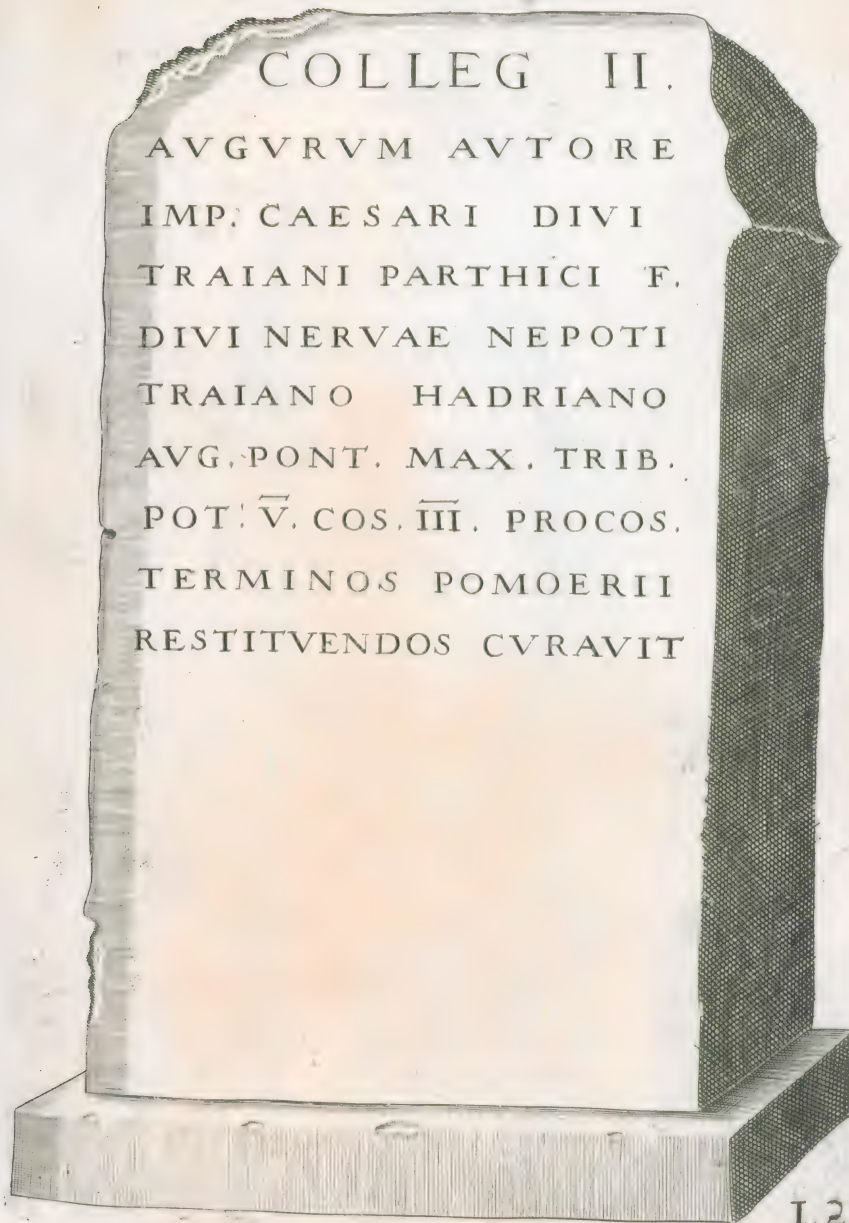 COLLEG II.
AVGVRVM AVTORE
IMP. CAESARI DIVI
TRAIANI PARTHICI F.
DIVI NERVAE NEPOTI
TRAIANO HADRIANO
AVG. PONT. MAX. TRIB.
POT. V̅. COS. I̅I̅I̅. PROCOS.
TERMINOS POMOERII
RESTITVENDOS CVRAVIT